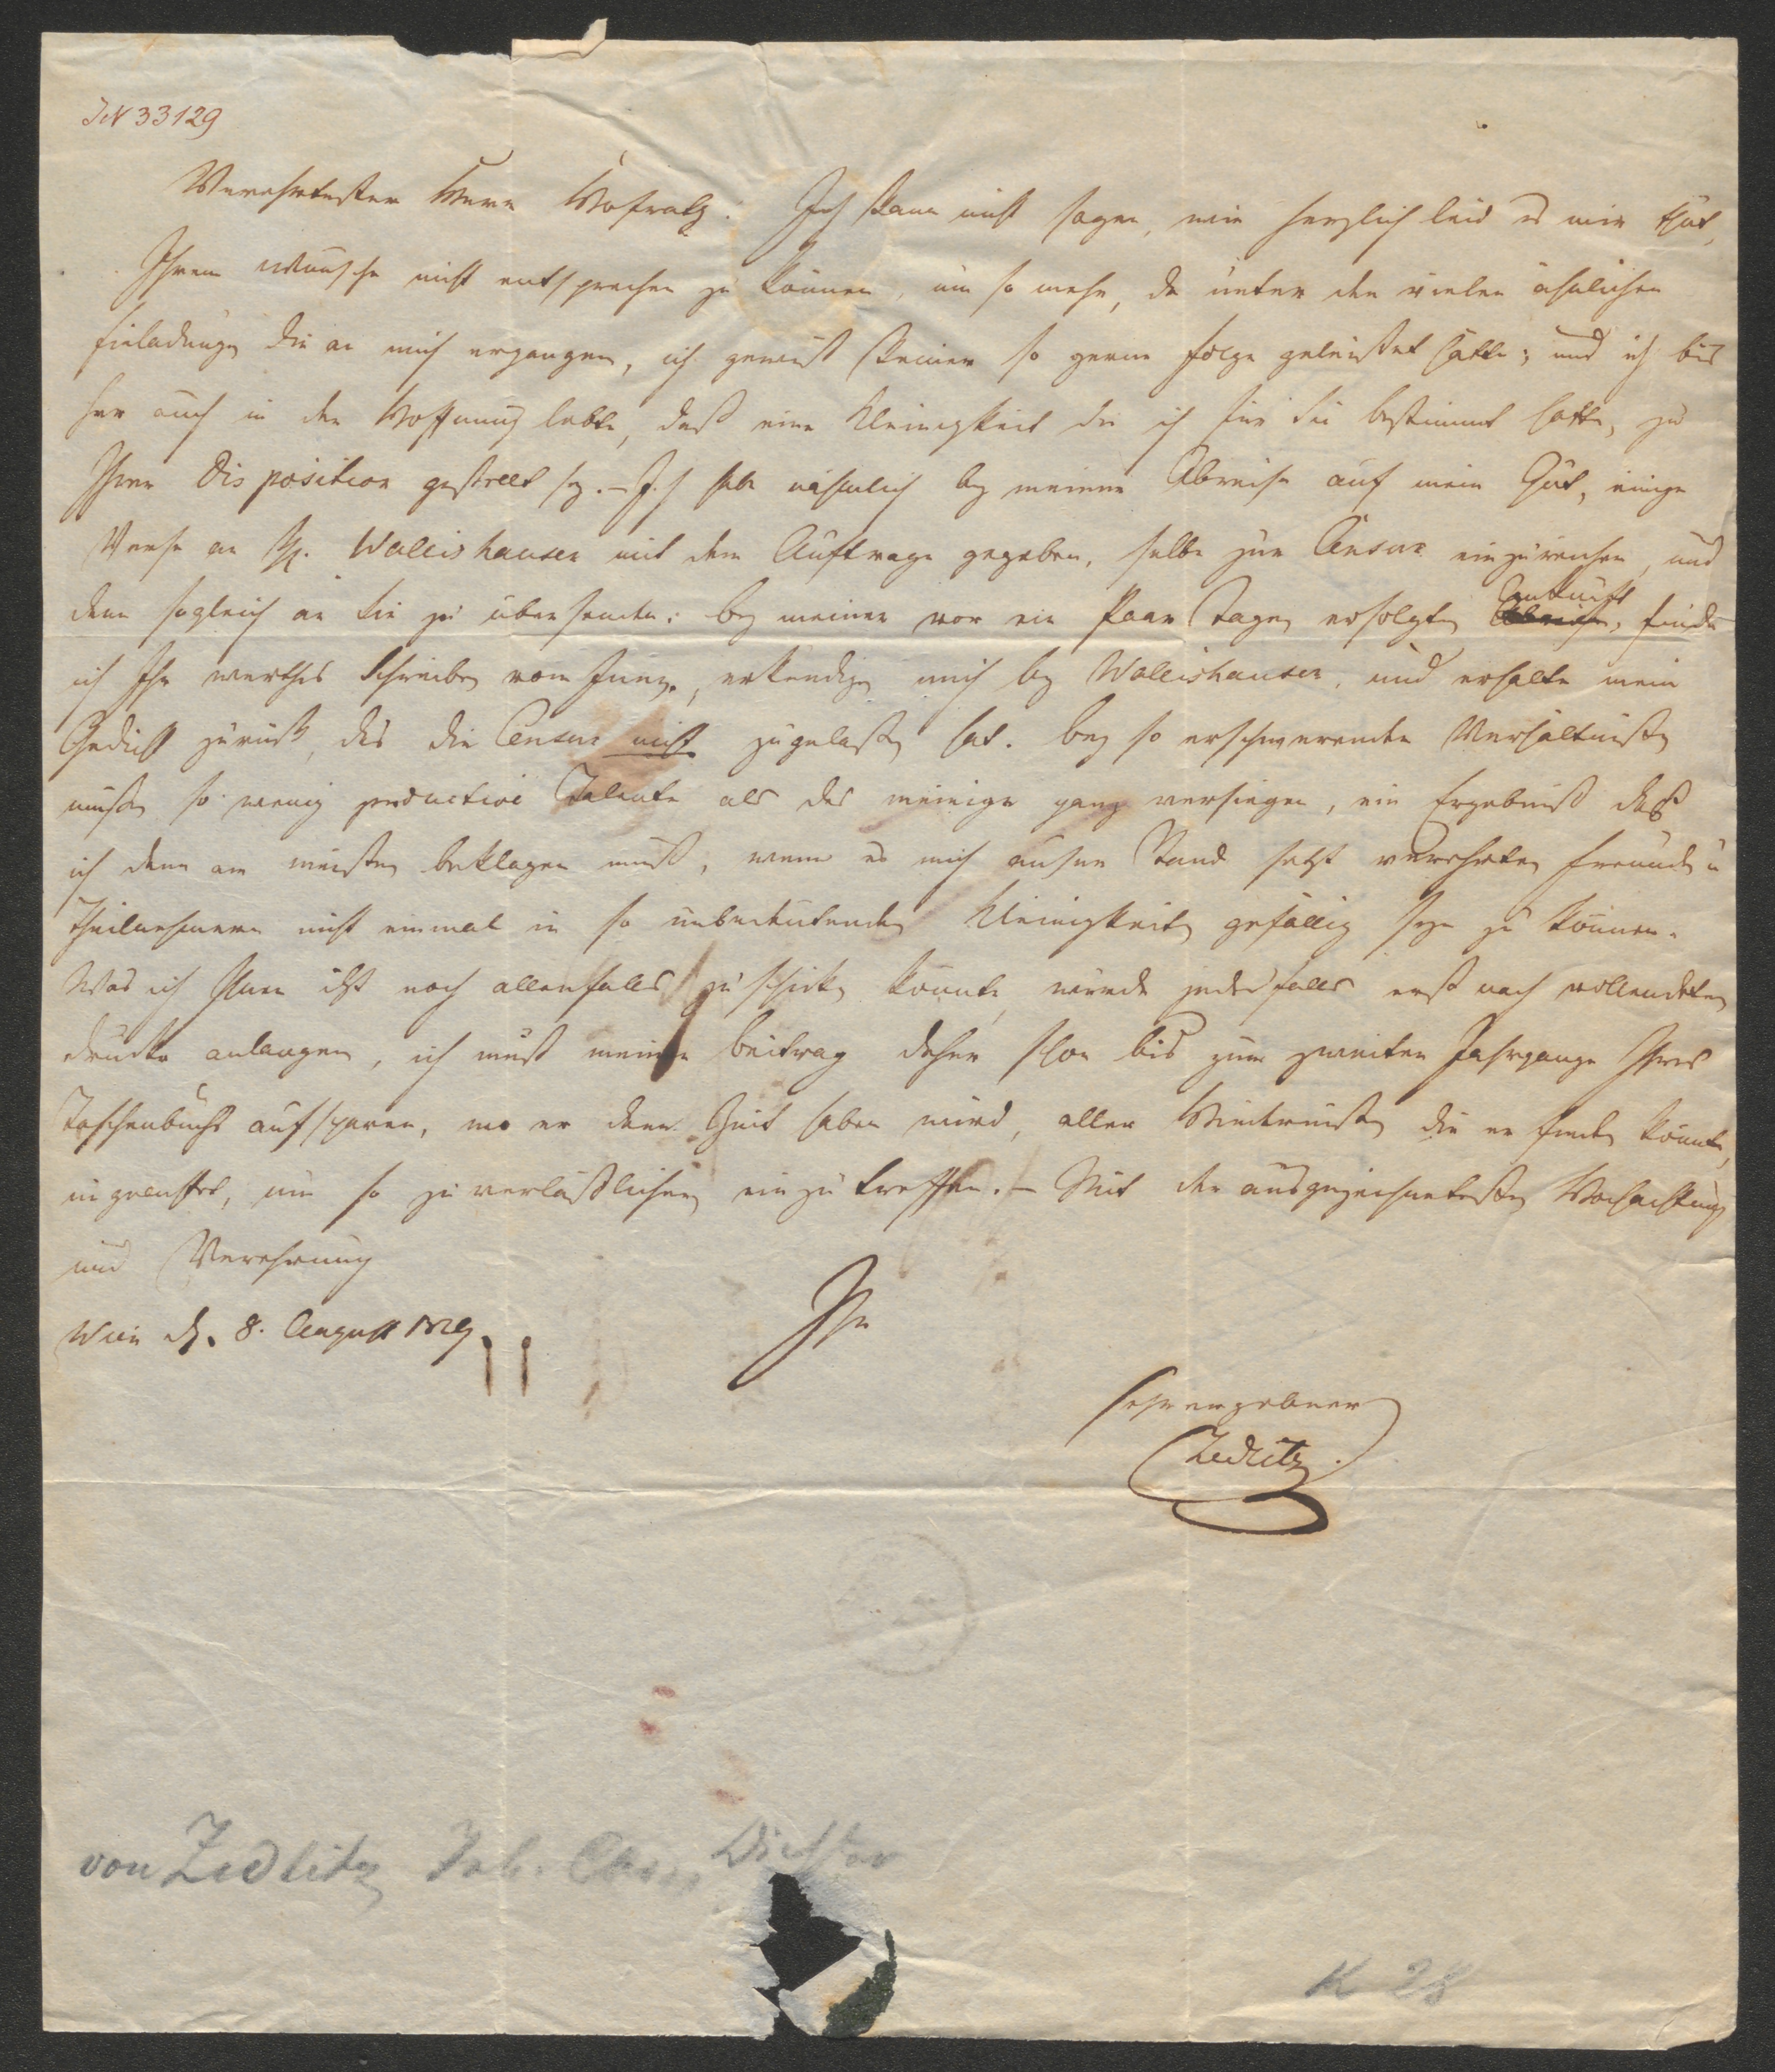 IN 33129
Verehrtester Herr Hofrath! Ich kann nicht sagen, wie herzlich leid es mir thut,
Ihrem Wunsche nicht entsprechen zu können, um so mehr, da unter den vielen ähnlichen
Einladungen die an mich ergangen, ich gewiß keiner so gerne Folge geleistet hätte; und ich bis
her auch in der Hoffnung lebte, daß eine Kleinigkeit die ich für Sie bestimmt hatte, zu
Ihrer Disposition gestellt sey. – Ich habe nähmlich bey meiner Abreise auf mein Gut, einige
Verse an H. Wallishauser mit dem Auftrage gegeben, selbe zur Censur einzureichen, und
dann sogleich an Sie zu übersenden: bey meiner vor ein Paar Tagen erfolgten Ankunft finde
ich Ihr werthes Schreiben vom Juny, erkundige mich bey Wallishauser, und erhalte mein
Gedicht zurück, das die Censur nicht zugelaßen hat. Bey so erschwerenden Verhältnißen
müßen so wenig productive Talente als das meinige ganz versiegen, ein Ergebniß daß
ich dann am meisten beklagen muß, wenn es mich außer Stand setzt verehrten Freunden u
Theilnehmern nicht einmal in so unbedeutenden Kleinigkeiten gefällig seyn zu können.
Was ich Ihnen itzt noch allenfalls zu schicken könnte, würde jedesfalls erst nach vollendetem
Drucke anlangen, ich muß meinen Beitrag daher schon bis zum zweiten Jahrgange Ihres
Taschenbuchs aufsparen, wo er dann Zeit haben wird, aller Hinderniße die er finden könnte,
ungeachtet, um so zuverläßlicher einzutreffen. – Mit der ausgezeichnetesten Hochachtung
und Verehrung
Wien d. 8. August 1829.
Ihr
sehr ergebner
Zedlitz.
von Zedlitz Joh. Chr. Dichter
K 28